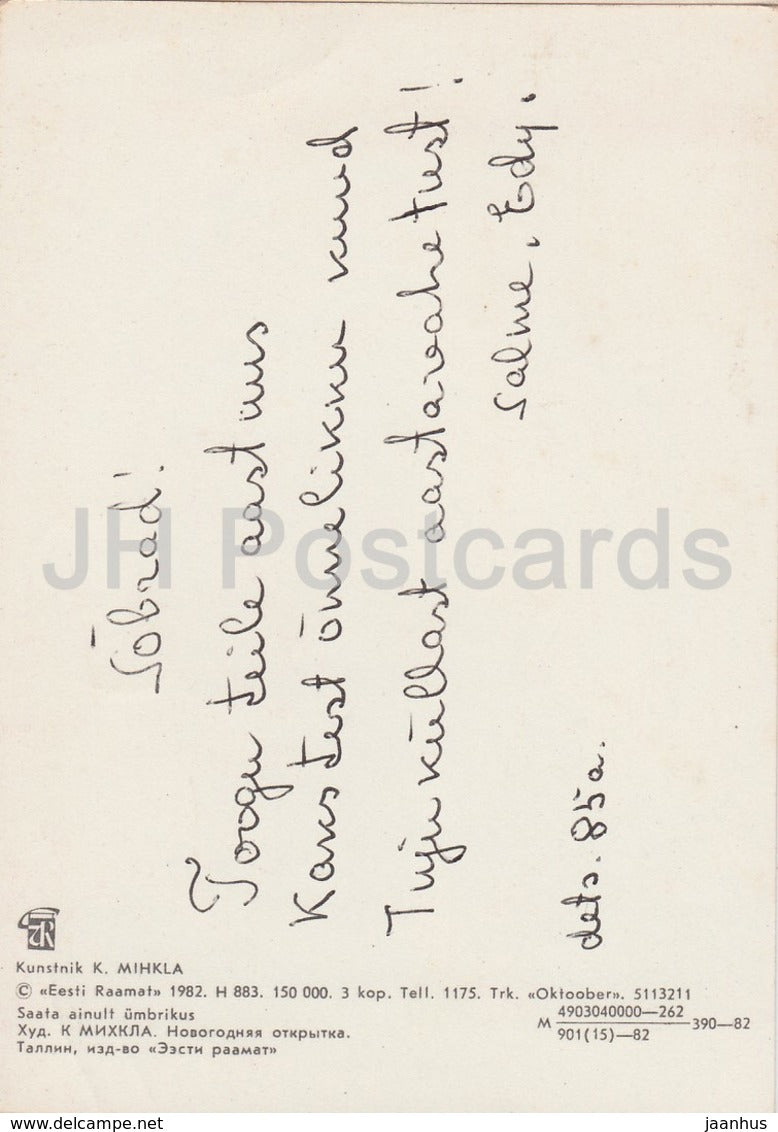 Sõbrad!
Toogu teile aast uus
Kaksteist õnnelikku kuud
Tujuküllast aastavahetust!
Salme, Edy.
dets. 85a.
JH Postcards
Kunstnik K. MIHKLA
© «Eesti Raamat» 1982. H 883. 150 000. 3 kop. Tell. 1175. Trk. «Oktoober». 5113211
Saata ainult ümbrikus
Худ. К МИХКЛА. Новогодняя открытка.
Таллин, изд-во «Ээсти раамат»
М 4903040000—262
901(15)—82 390—82
www.delcampe.net
jaanhus